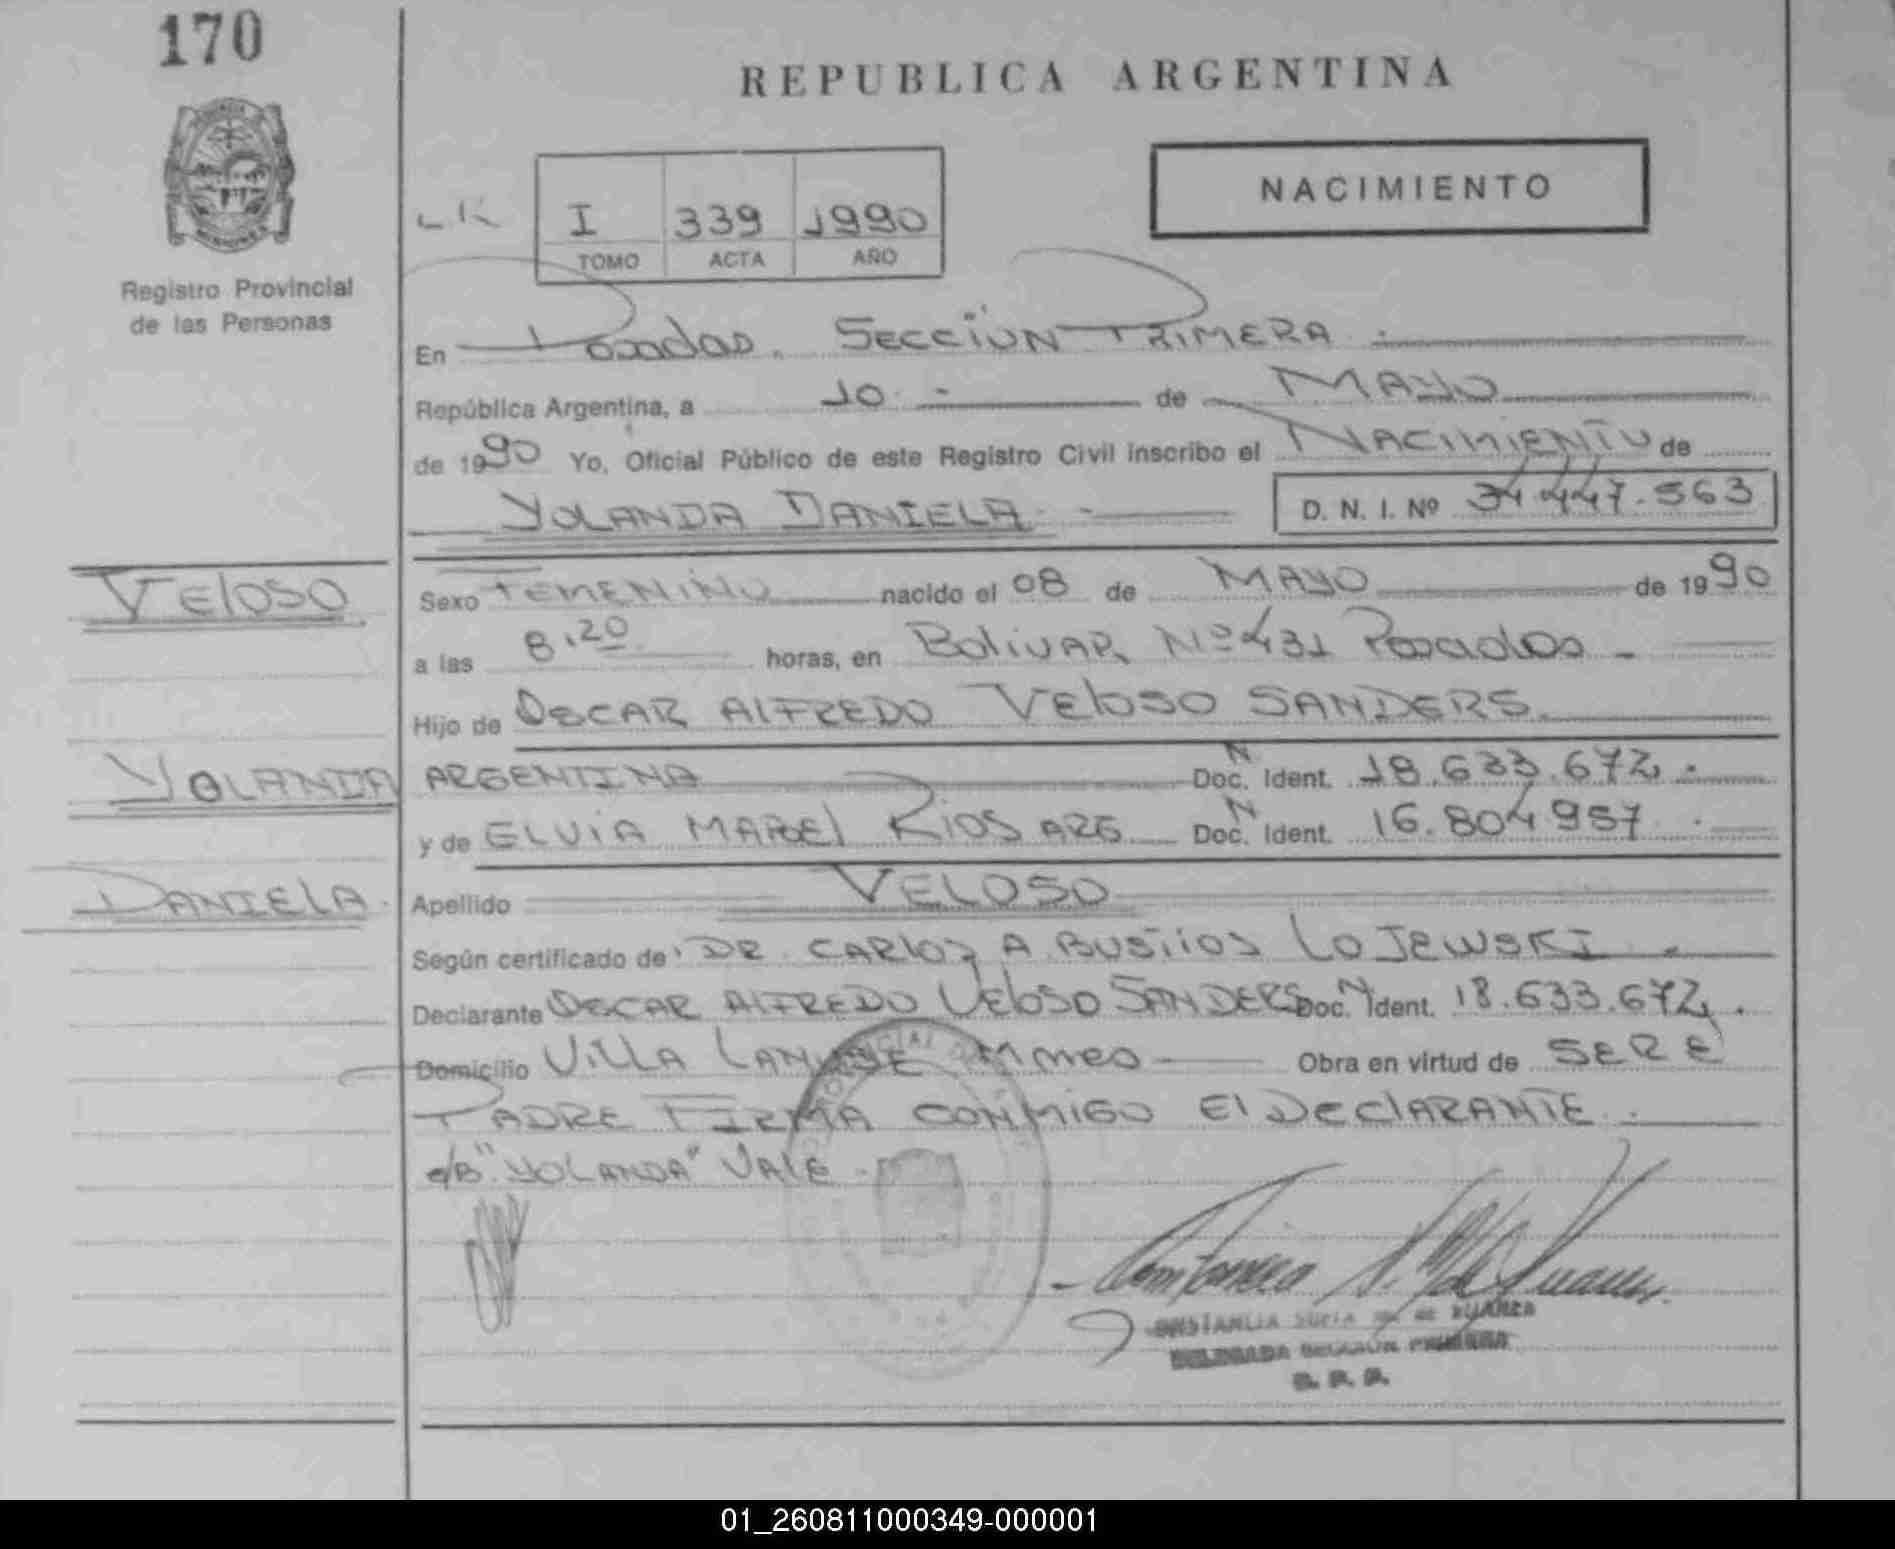 170
REPUBLICA ARGENTINA
NACIMIENTO
I 339 1990
TOMO ACTA AÑO
Registro Provincial
de las Personas
En Posadas. SECCIÓN PRIMERA.
República Argentina, a 10 - de MAYO
de 1990 Yo, Oficial Público de este Registro Civil inscribo el NACIMIENTO de
YOLANDA DANIELA.- D. N. I. Nº 34.447.563
VELOSO
Sexo FEMENINO nacido el 08 de MAYO de 1990
a las 8.20 horas, en BOLIVAR Nº 431 Posadas -
Hijo de OSCAR ALFREDO VELOSO SANDERS.
YOLANDA
ARGENTINA Doc. N Ident. 18.633.672.
y de ELVIA MABEL RIOS ARG Doc. N Ident. 16.804957.
DANIELA.
Apellido VELOSO
Según certificado de DR. CARLOS A BUSTIOS LOJEWSKI.
Declarante OSCAR ALFREDO VELOSO SANDERS Doc. N Ident. 18.633.672.
Domicilio VILLA LANUSSE Mnes Obra en virtud de SER E
PADRE FIRMA CONMIGO EL DECLARANTE.
e/B "YOLANDA" VALE.
DELEGADA SECCION PRIMERA
R. P. P.
01_260811000349-000001